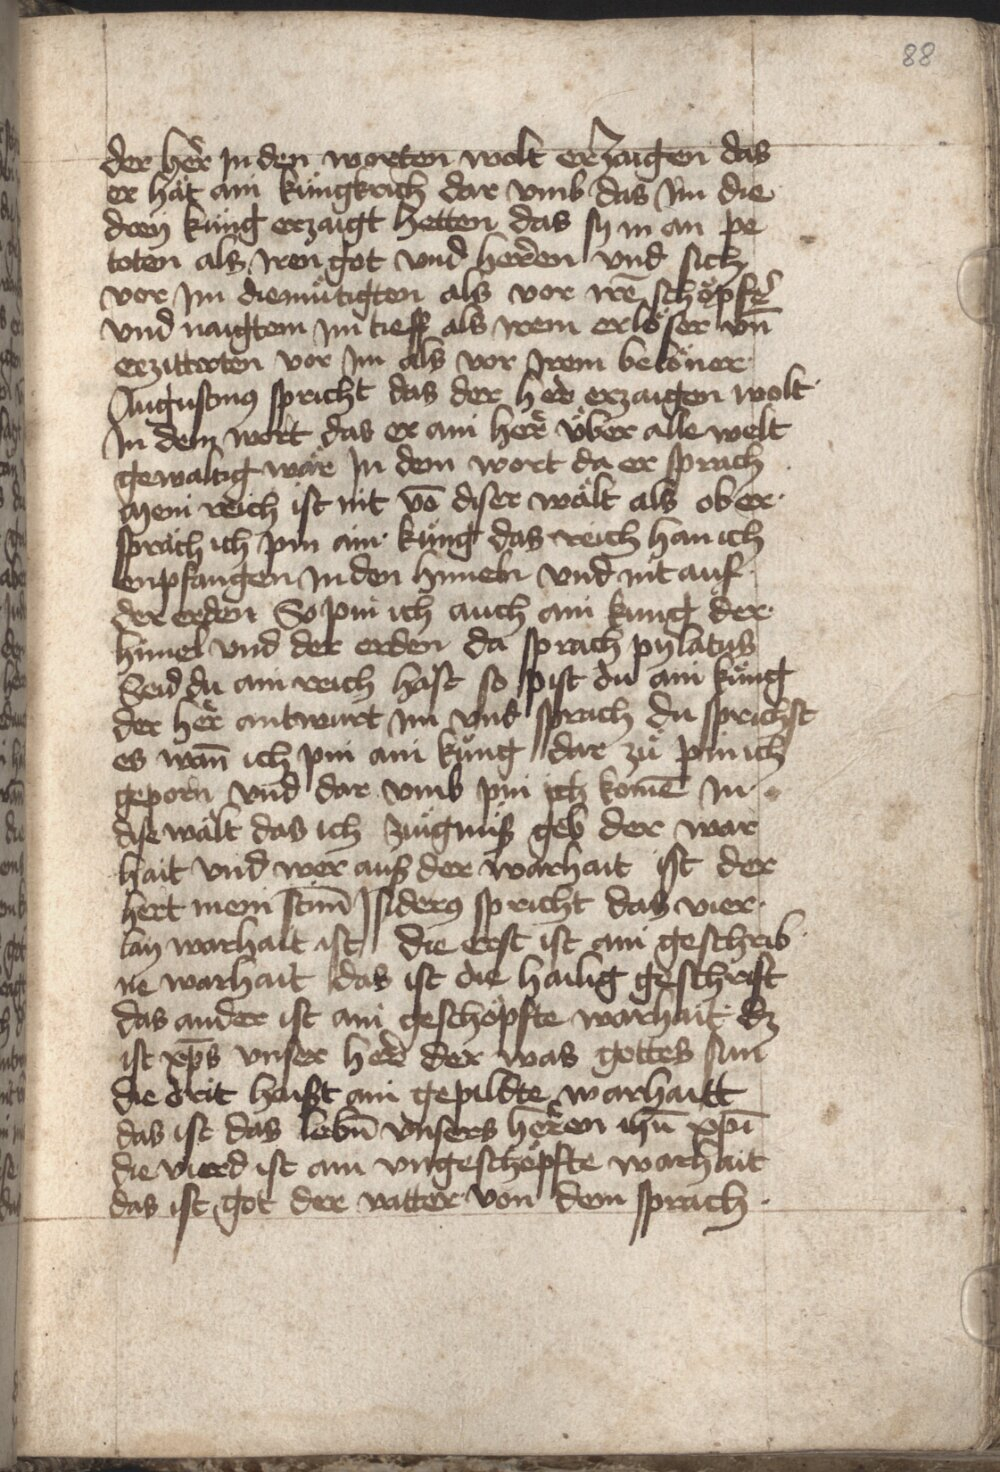 88
der her̄ Jn den worten wolt erzaigen das
er hät ain küngkrich dar vmb das Jm die
dreÿ küng erzaigt hetten das sy in an pe
toten als Jren got vnd heren̄ vnd sich
vor Jm diemütigten als vor irē schöpfer̄
vnd naigtem Jm tieff als irem erlöser vn̄
erzitterten vor Jm als vor Jrem belöner
Augustinus spricht das der her̄ erzaigen wolt
Jn dem wort das er ain her̄ über alle welt
gewaltig wär Jn dem wort da er sprach
mein reich ist nit vō diser wält als ob er
spräch ich pin ain küng das reich han ich
enpfangen Jn den himeln vnd nit auf
der erden So pin ich auch ain kung der
himel vnd der erden da sprach pylatus
Seid du ain reich hast so pist du ain küng
der her̄ antwurt Jm vnd sprach du sprichst
es wan̄ ich pin ain küng dar zů pin ich
geporn vnd dar vmb pin ich komē Jn
dise wält das ich zügnüß geb der war
hait vnd wer auß der warhait ist der
hert mein stim̄ Jsiderus spricht das vier
lay warhait ist die erst ist ain geschrib
ne warhait das ist die hailig geschrift
das ander ist ain geschöpfte warhait dz
ist xp̄s vnser her̄ der was gottes sun
die drit haist ain gepildte warhaitt
das ist das lebn̄ vnsers herren ihū xp̄i
die vierd ist ain vngeschöpfte warhait
das ist got der vatter von dem sprach